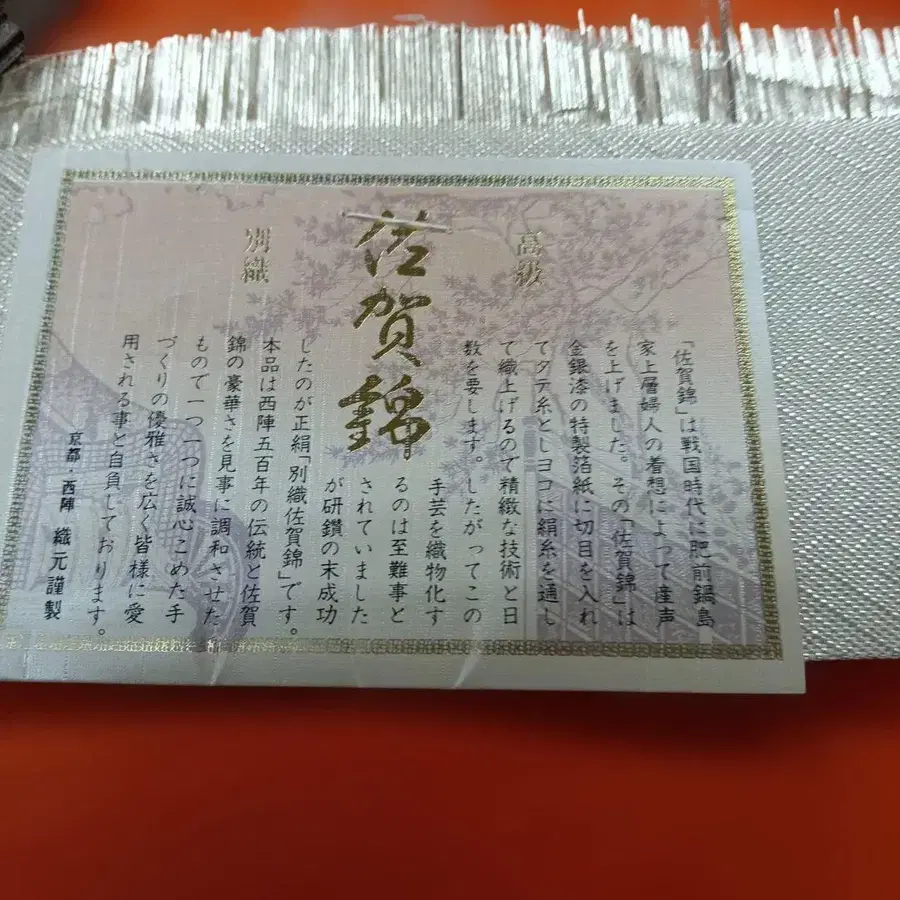 高級
佐賀錦
別織
「佐賀錦」は戦国時代に肥前鍋島
家上層婦人の着想によって産声
を上げました。その「佐賀錦」は
金銀漆の特製箔紙に切目を入れ
てタテ糸としヨコに絹糸を通し
て織上げるので精緻な技術と日
数を要します。したがってこの
手芸を織物化す
るのは至難事と
されていました
が研鑽の末成功
したのが正絹「別織佐賀錦」です。
本品は西陣五百年の伝統と佐賀
錦の豪華さを見事に調和させた
もので一つ一つに誠心こめた手
づくりの優雅さを広く皆様に愛
用される事と自負しております。
京都・西陣 織元謹製